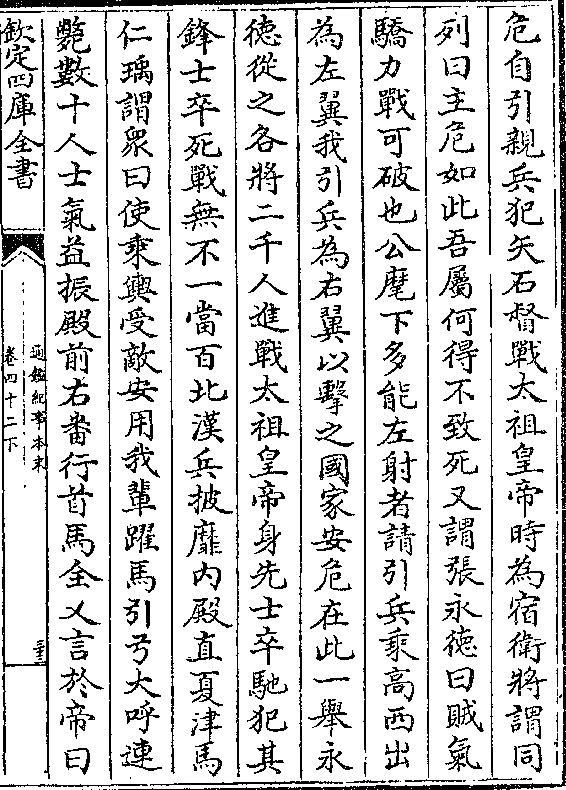 危自引親兵犯矢石督戰太祖皇帝時為宿衛將謂同
列曰主危如此吾屬何得不致死又謂張永德曰賊氣
驕力戰可破也公麾下多能左射者請引兵乘高西出
為左翼我引兵為右翼以擊之國家安危在此一舉永
德從之各將二千人進戰太祖皇帝身先士卒馳犯其
鋒士卒死戰無不一當百北漢兵披靡内殿直夏津馬
仁瑀謂衆曰使乘輿受敵安用我輩躍馬引弓大呼連
斃數十人士氣益振殿前右番行首馬全乂言於帝曰
欽定四庫全書
通鑑紀事本末
卷四十二下